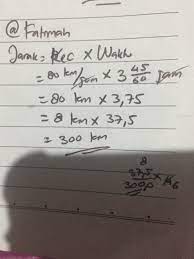 @ Fatimah
Jarak = Kec × Waktu
= 80 km/jam × 3 45/60 jam
= 80 km × 3,75
= 8 km × 37,5
= 300 km
8
37,5
300,0 ×